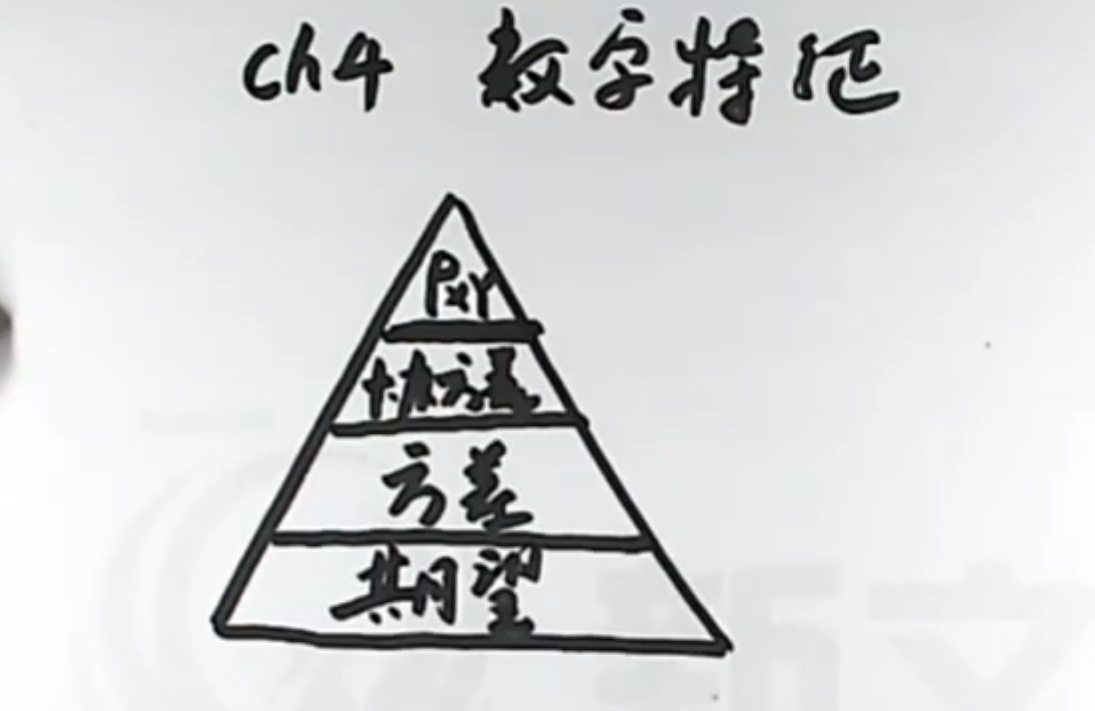 ch4 数字特征
ρxy
协方差
方差
期望